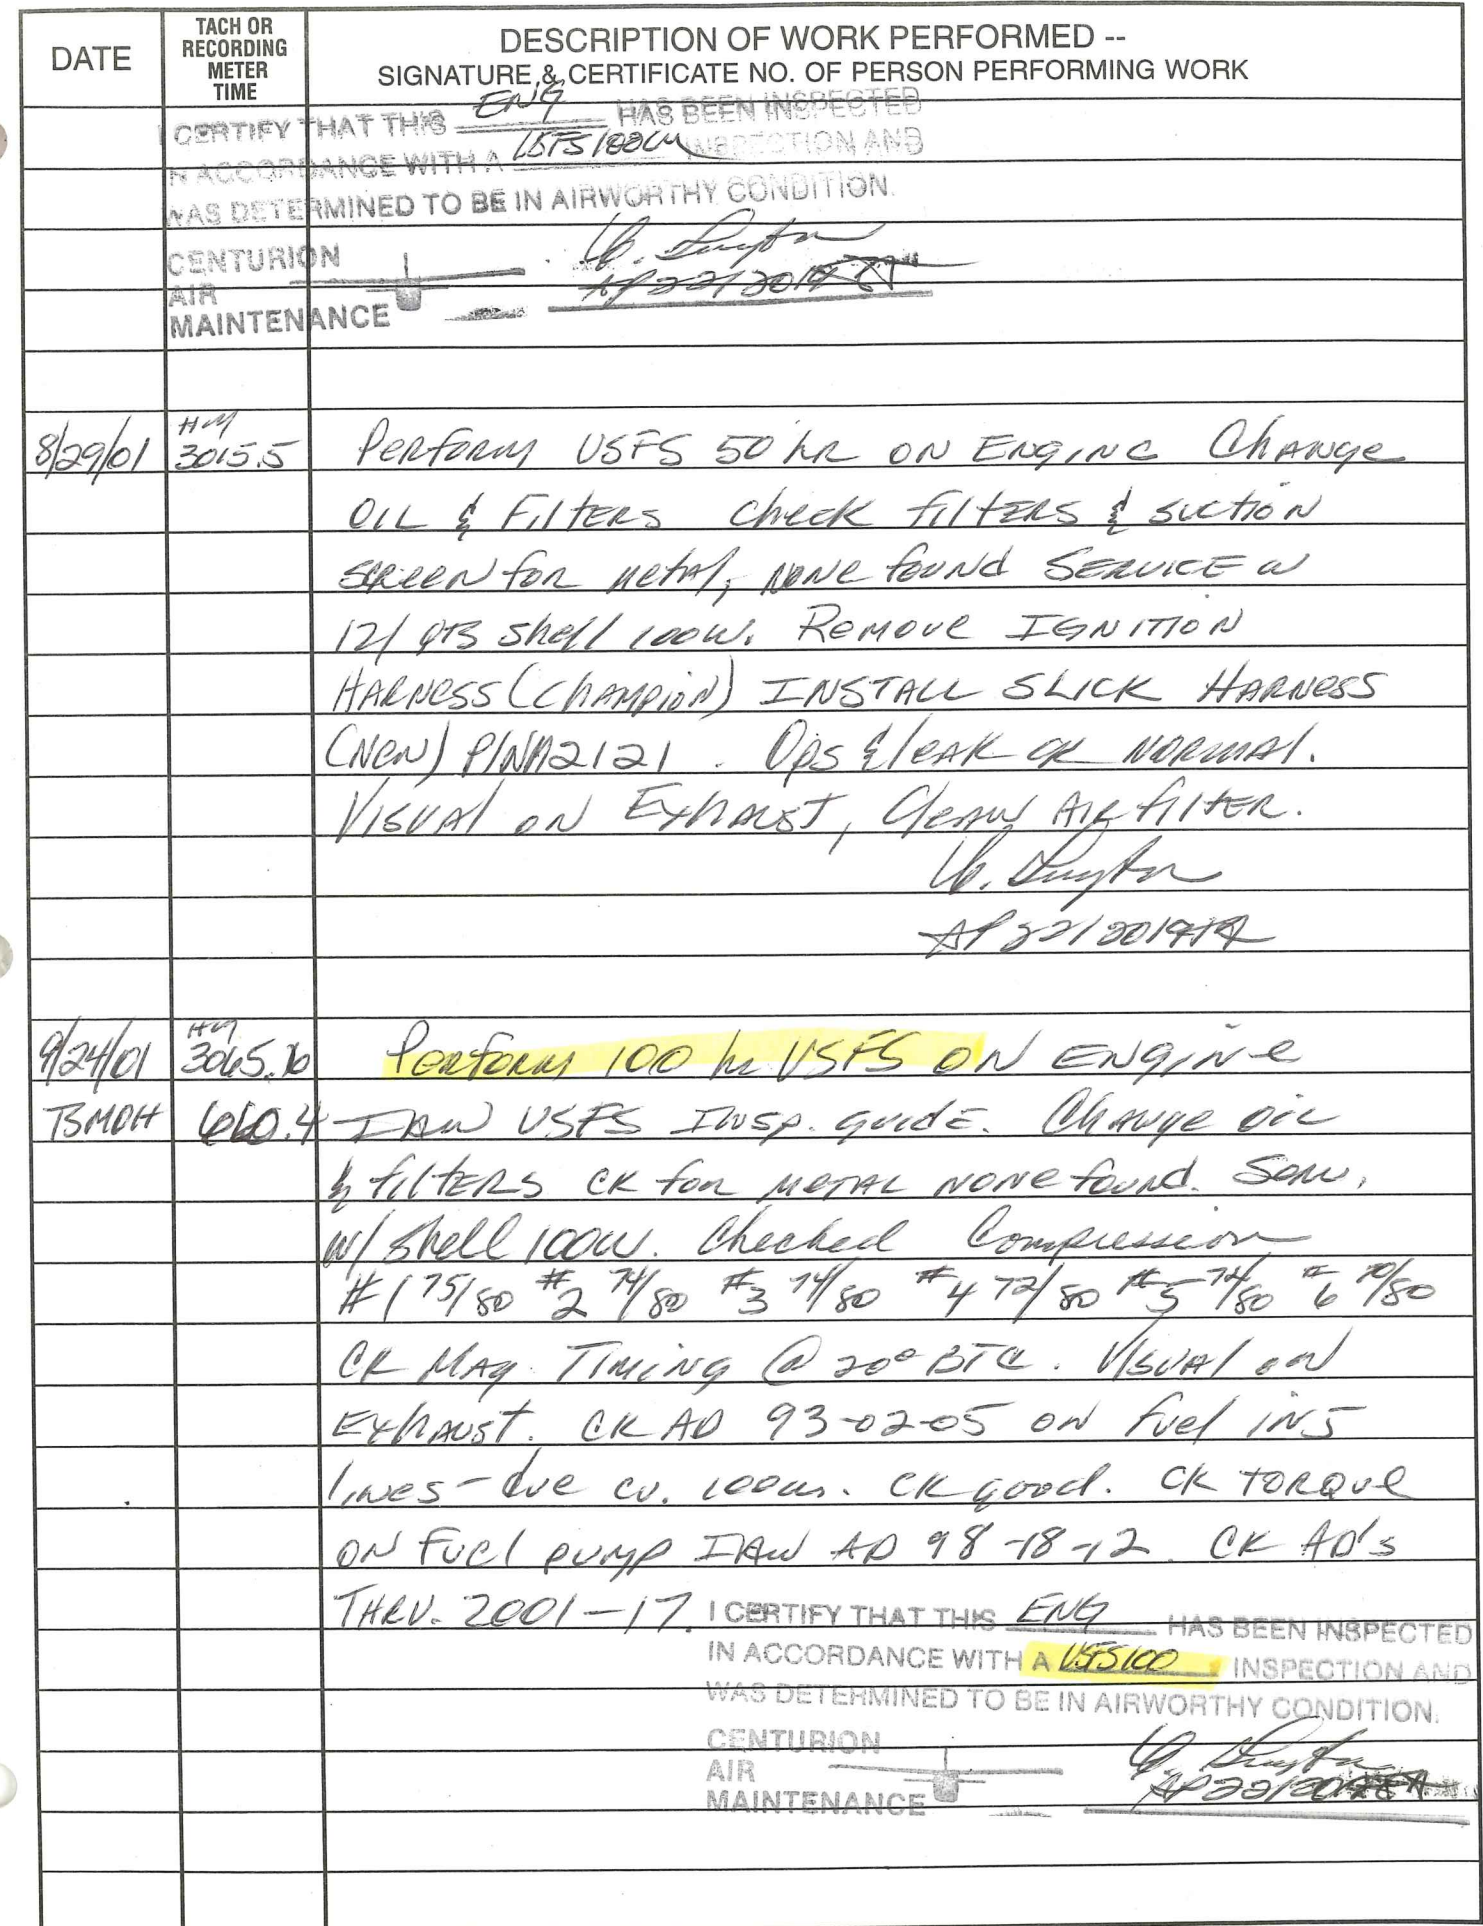 DATE
TACH OR
RECORDING
METER
TIME
DESCRIPTION OF WORK PERFORMED --
SIGNATURE & CERTIFICATE NO. OF PERSON PERFORMING WORK
I CERTIFY THAT THIS ENG HAS BEEN INSPECTED
IN ACCORDANCE WITH A USFS 100 INSPECTION AND
WAS DETERMINED TO BE IN AIRWORTHY CONDITION.
CENTURION
AIR
MAINTENANCE
8/29/01 HM 3015.5 Perform USFS 50 hr ON ENGINE Change
OIL & FILTERS check filters & suction
screen for metal, none found SERVICE w
12/ qts shell 100W. Remove IGNITION
HARNESS (CHAMPION) INSTALL SLICK HARNESS
(NEW) P/N M2121. Ops & leak ck NORMAL.
VISUAL ON EXHAUST, Clean AIR FILTER.
9/24/01 HM 3065. Perform 100 hr USFS ON ENGINE
TSMOH 660.4 IAW USFS INSP. guide. Change oil
& filters CK for METAL none found. Serv.
w/ shell 100W. Checked Compression
#1 75/80 #2 74/80 #3 74/80 #4 72/80 #5 74/80 #6 70/80
CK MAG TIMING @ 20° BTC. VISUAL on
EXHAUST. CK AD 93-02-05 on fuel inj
lines - due ev. 100hrs. CK good. CK TORQUE
ON FUEL PUMP IAW AD 98-18-12. CK AD's
THRU. 2001-17. I CERTIFY THAT THIS ENG HAS BEEN INSPECTED
IN ACCORDANCE WITH A USFS 100 INSPECTION AND
WAS DETERMINED TO BE IN AIRWORTHY CONDITION.
CENTURION
AIR
MAINTENANCE